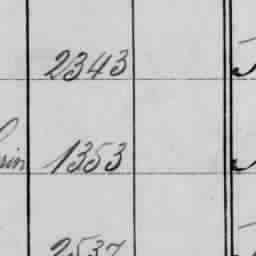 2343
1353
2537